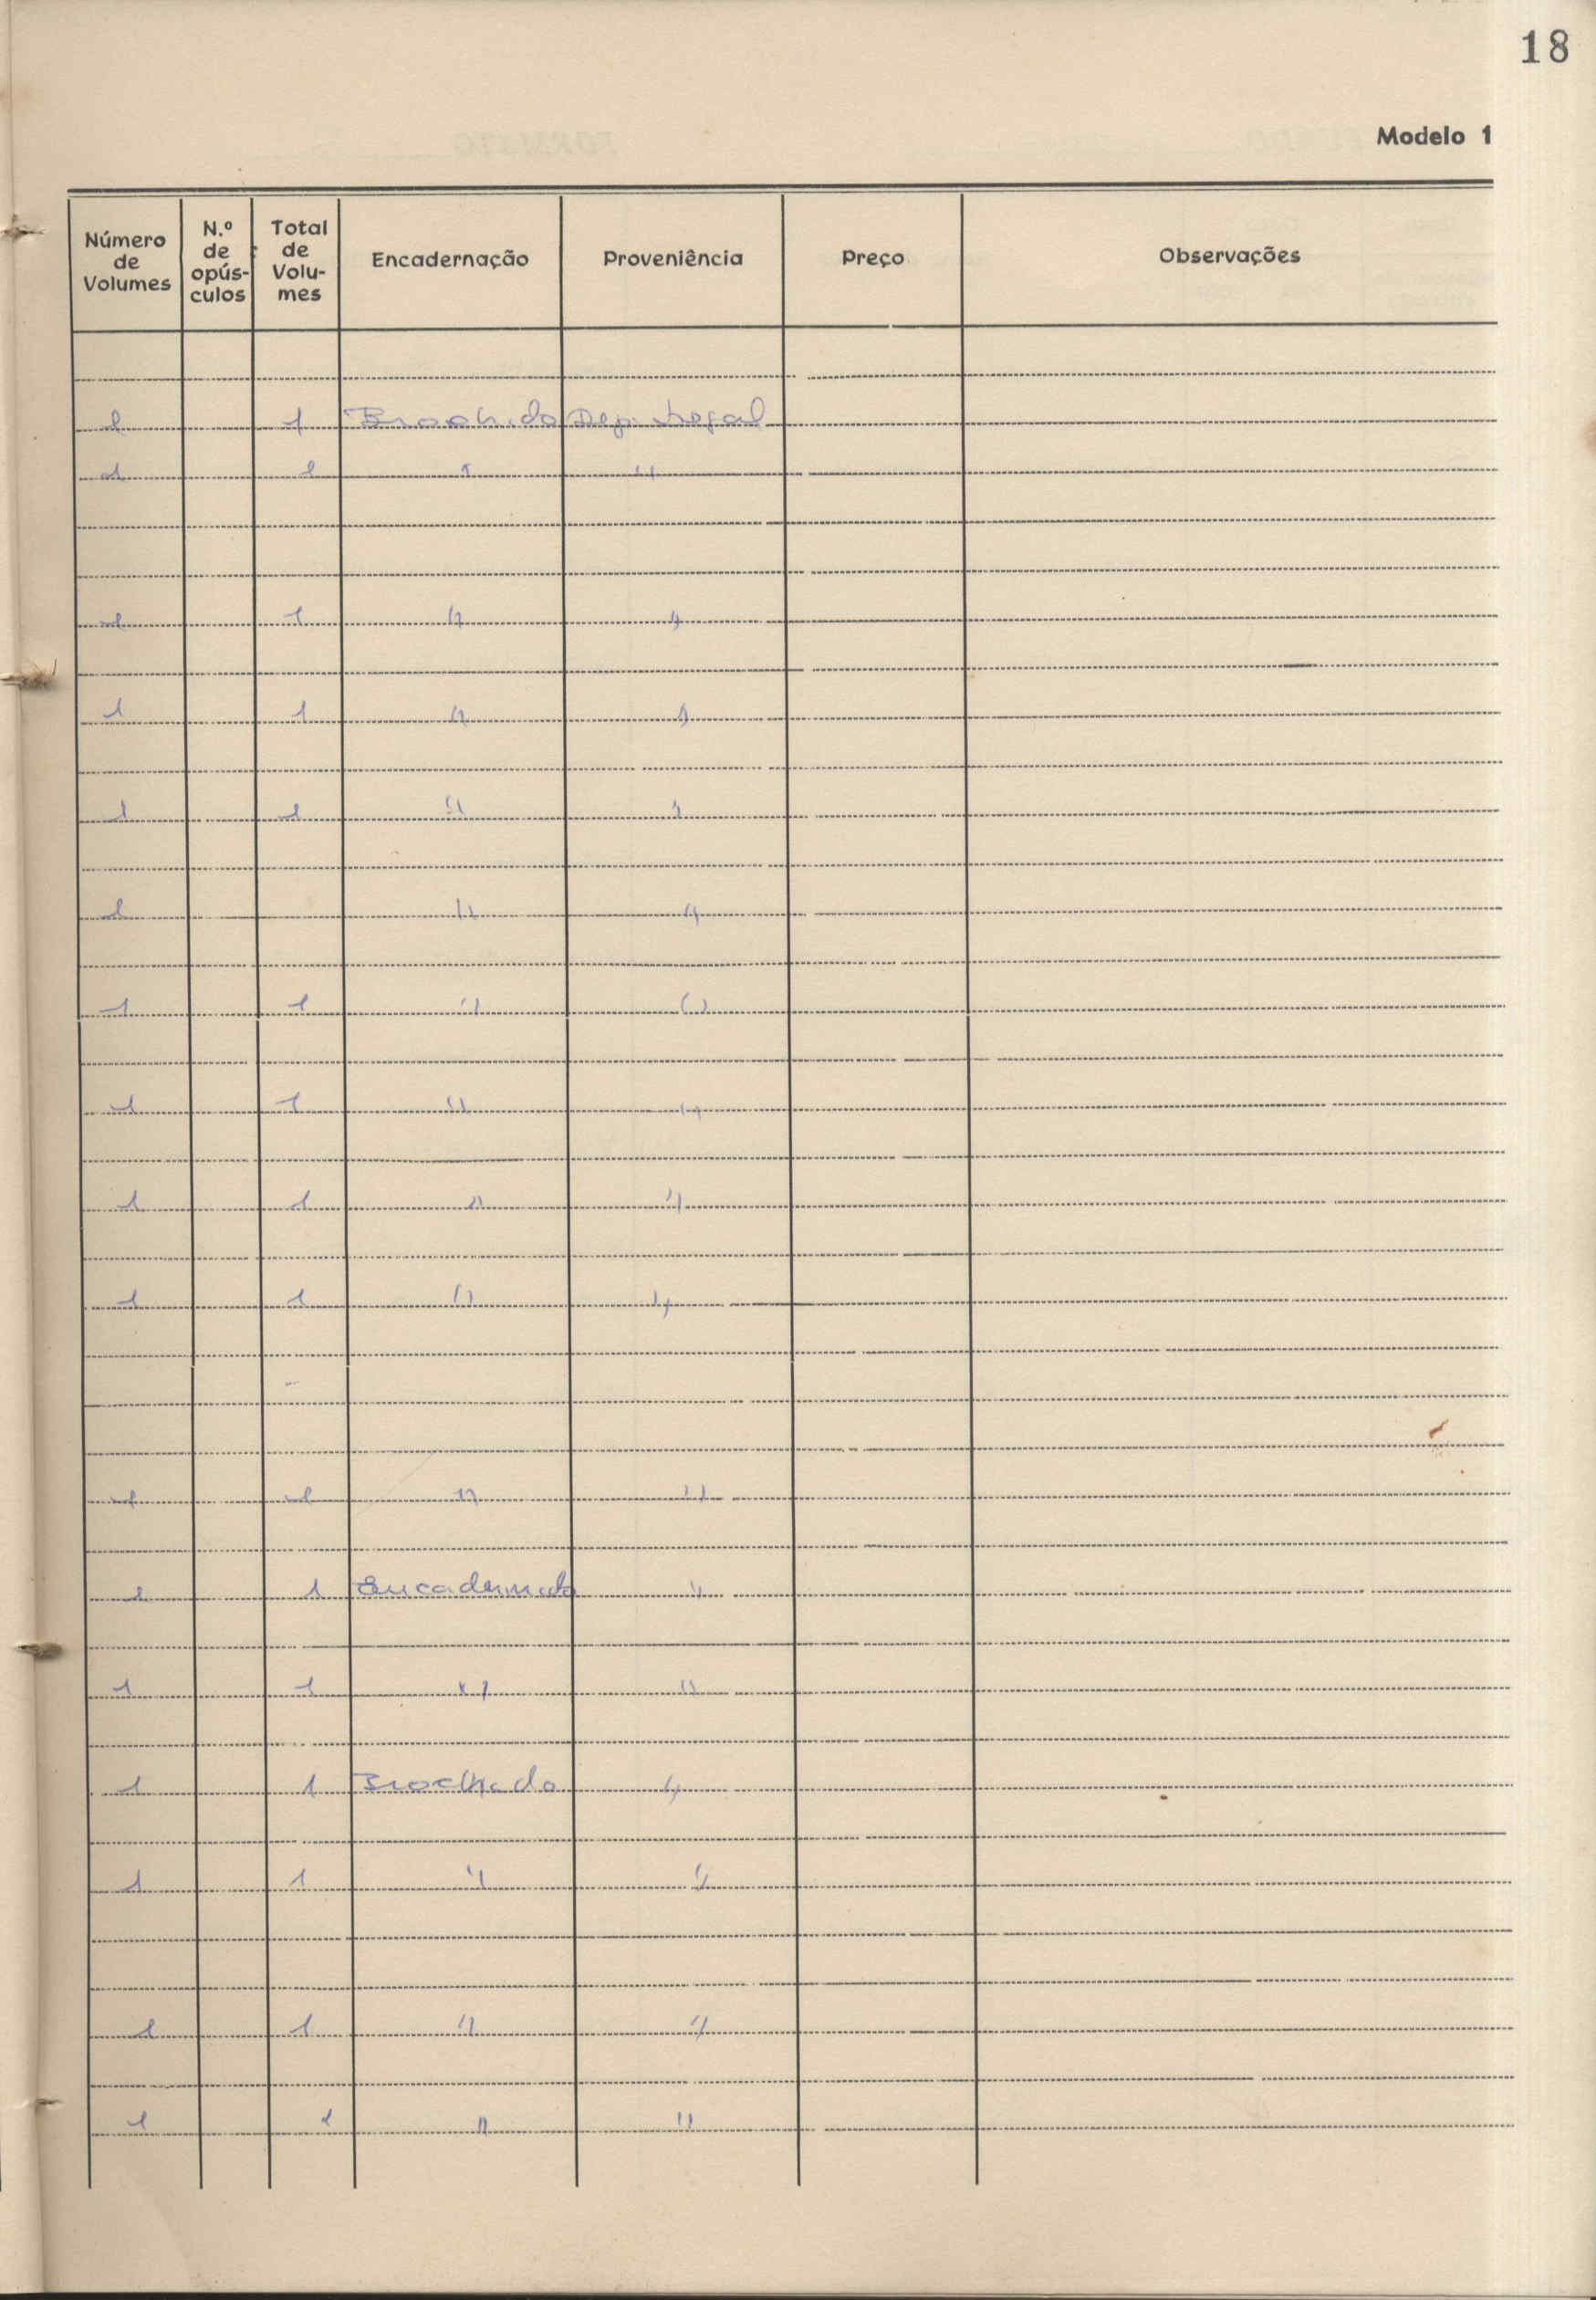 18
Modelo 1
Número de Volumes | N.º de opús-culos | Total de Volu-mes | Encadernação | Proveniência | Preço | Observações
1 1 Brochado Dep. Legal
1 1 " "
1 1 " "
1 1 " "
1 1 " "
1 " "
1 1 " "
1 1 " "
1 1 " "
1 1 " "
1 1 " "
1 1 Encadernado "
1 1 " "
1 1 Brochado "
1 1 " "
1 1 " "
1 1 " "